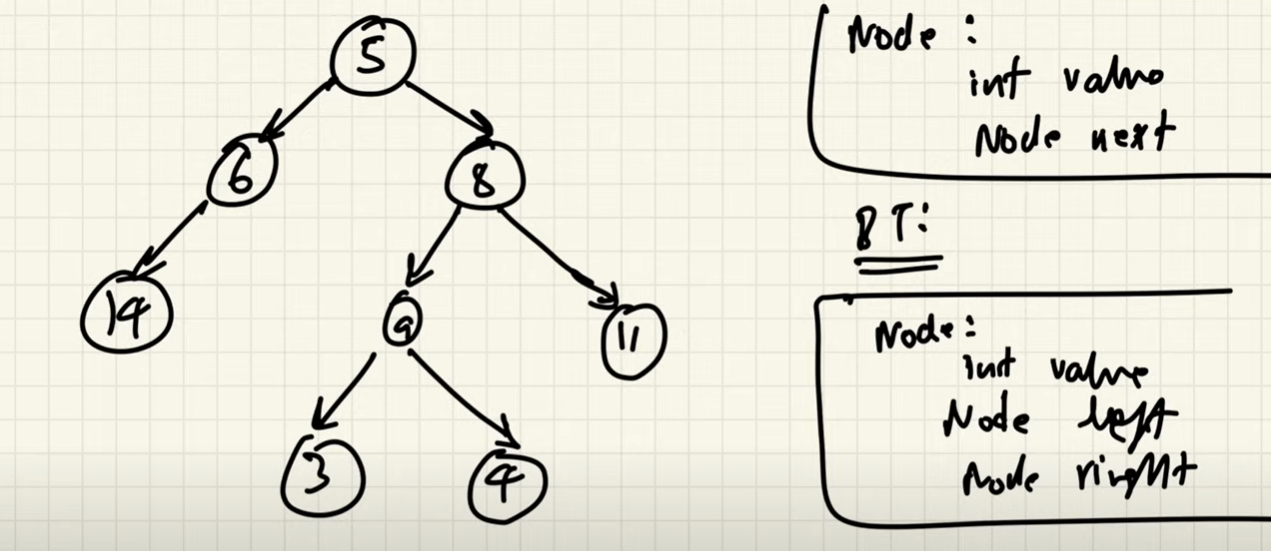 5
6
8
14
9
11
3
4
Node :
int value
Node next
BT:
Node:
int value
Node left
Node right